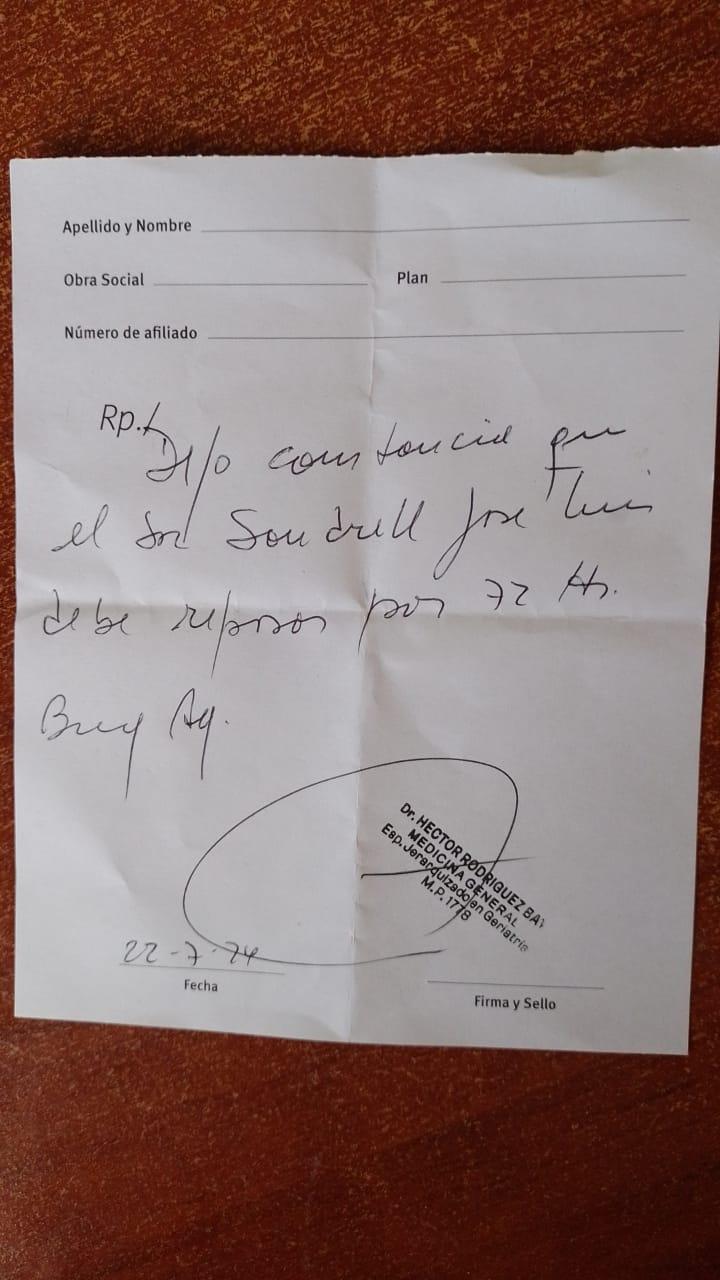 Apellido y Nombre
Obra Social Plan
Número de afiliado
Rp./
Dejo constancia que
el Sr Sondrell Jose Luis
debe reposar por 72 Hs.
Dr. HECTOR RODRIGUEZ
MEDICINA GENERAL
Esp. Jerarquizado en Geriatria
M.P. 1778
22-7-24
Fecha
Firma y Sello